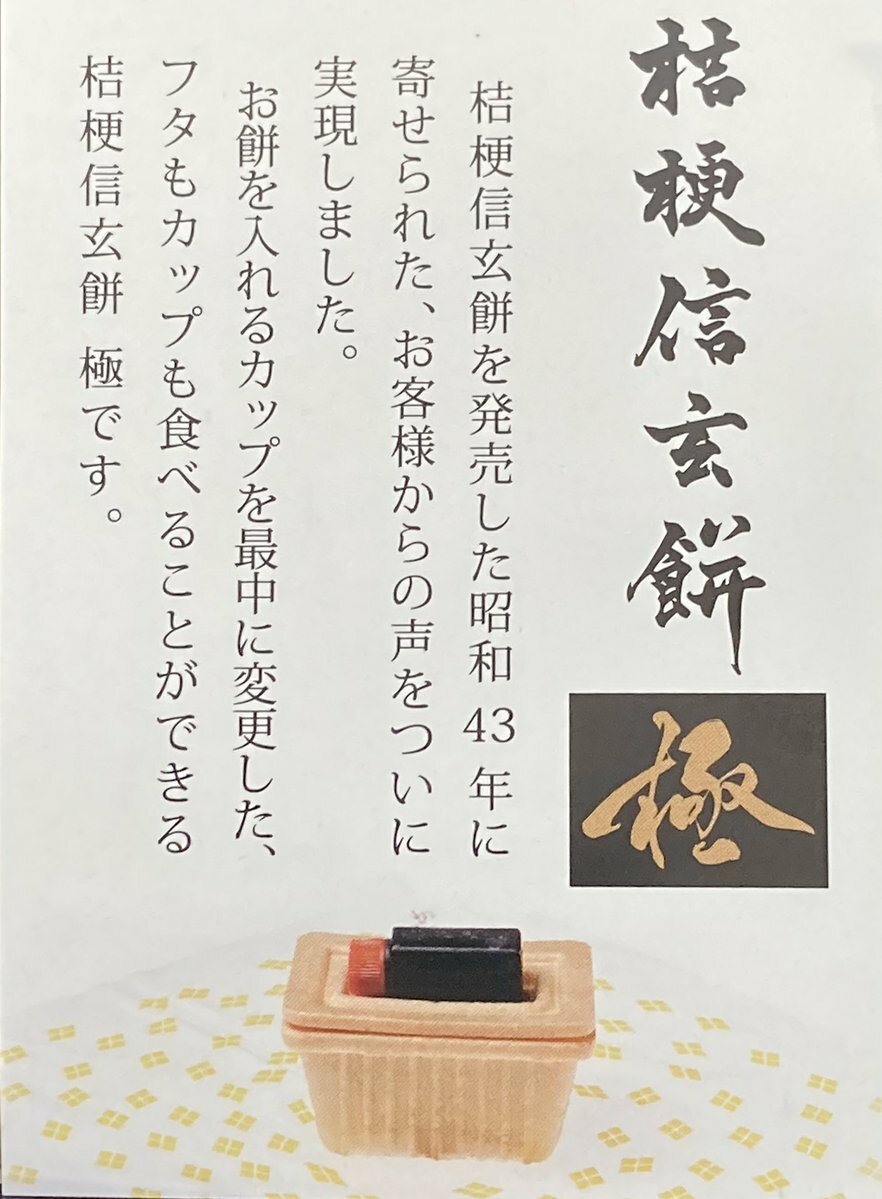 桔梗信玄餅
極
桔梗信玄餅を発売した昭和43年に
寄せられた、お客様からの声をついに
実現しました。
お餅を入れるカップを最中に変更した、
フタもカップも食べることができる
桔梗信玄餅 極です。